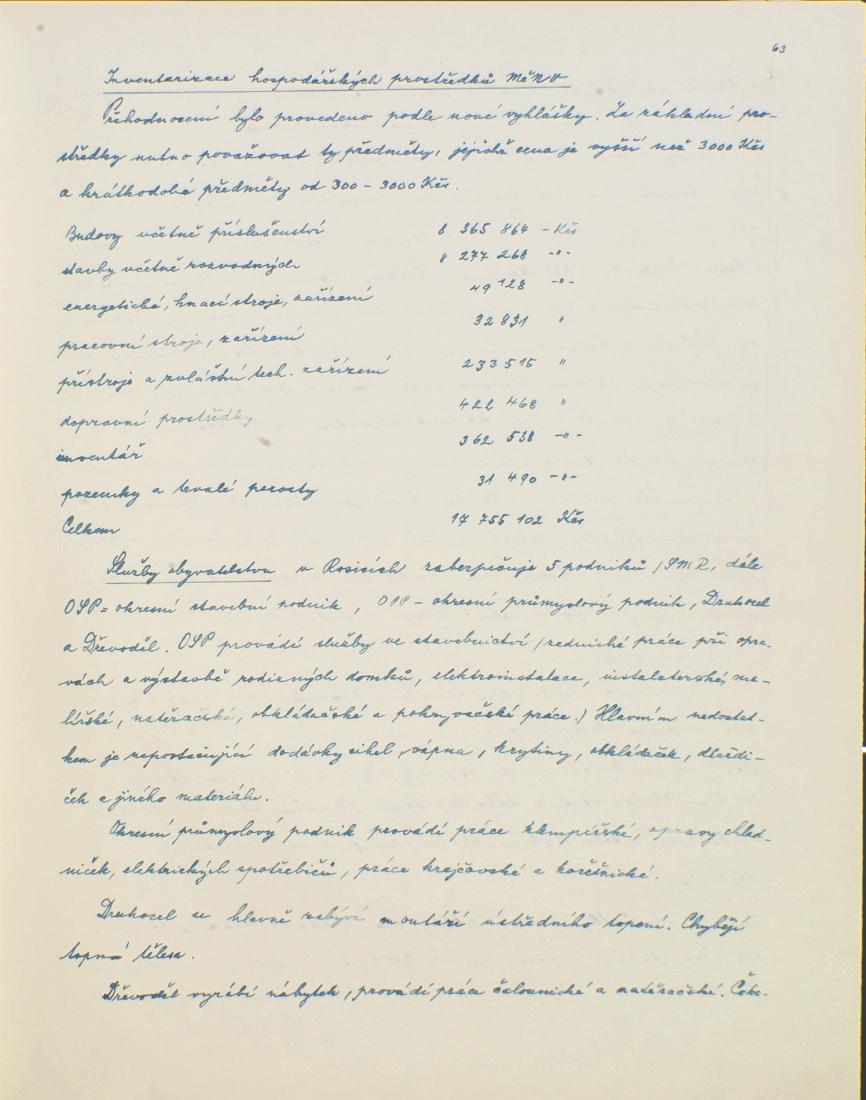 63
Inventarizace hospodářských prostředků MěNV
Přehodnocení bylo provedeno podle nové vyhlášky. Za základní pro-
středky nutno považovat ty předměty, jejichž cena je vyšší než 3000 Kčs
a krátkodobé předměty od 300 - 3000 Kčs.
Budovy včetně příslušenství 8 365 864 - Kčs
stavby včetně rozvodných 8 277 268 -"-
energetické, hnací stroje, zařízení 49 128 -"-
pracovní stroje, zařízení 32 831 "
přístroje a zvláštní tech. zařízení 233 515 "
dopravní prostředky 422 468 "
inventář 362 538 -"-
pozemky a trvalé porosty 31 490 -"-
Celkem 17 755 102 Kčs
Služby obyvatelstvu v Rosicích zabezpečuje 5 podniků /SMR, dále
OSP = okresní stavební podnik, OPP - okresní průmyslový podnik, Druhocel
a Dřevoděl. OSP provádí služby ve stavebnictví /zednické práce při opra-
vách a výstavbě rodinných domků, elektroinstalace, instalaterské, ma-
lířské, natěračské, obkládačské a pokrývačské práce./ Hlavním nedostat-
kem je nepostačující dodávky cihel, vápna, krytiny, obkládaček, dlaždi-
ček a jiného materiálu.
Okresní průmyslový podnik provádí práce klempířské, opravy chlad-
niček, elektrických spotřebičů, práce krejčovské a kožešnické.
Druhocel se hlavně zabývá montáží ústředního topení. Chybějí
topná tělesa.
Dřevoděl vyrábí nábytek, provádí práce čalounické a natěračské. Čeka-